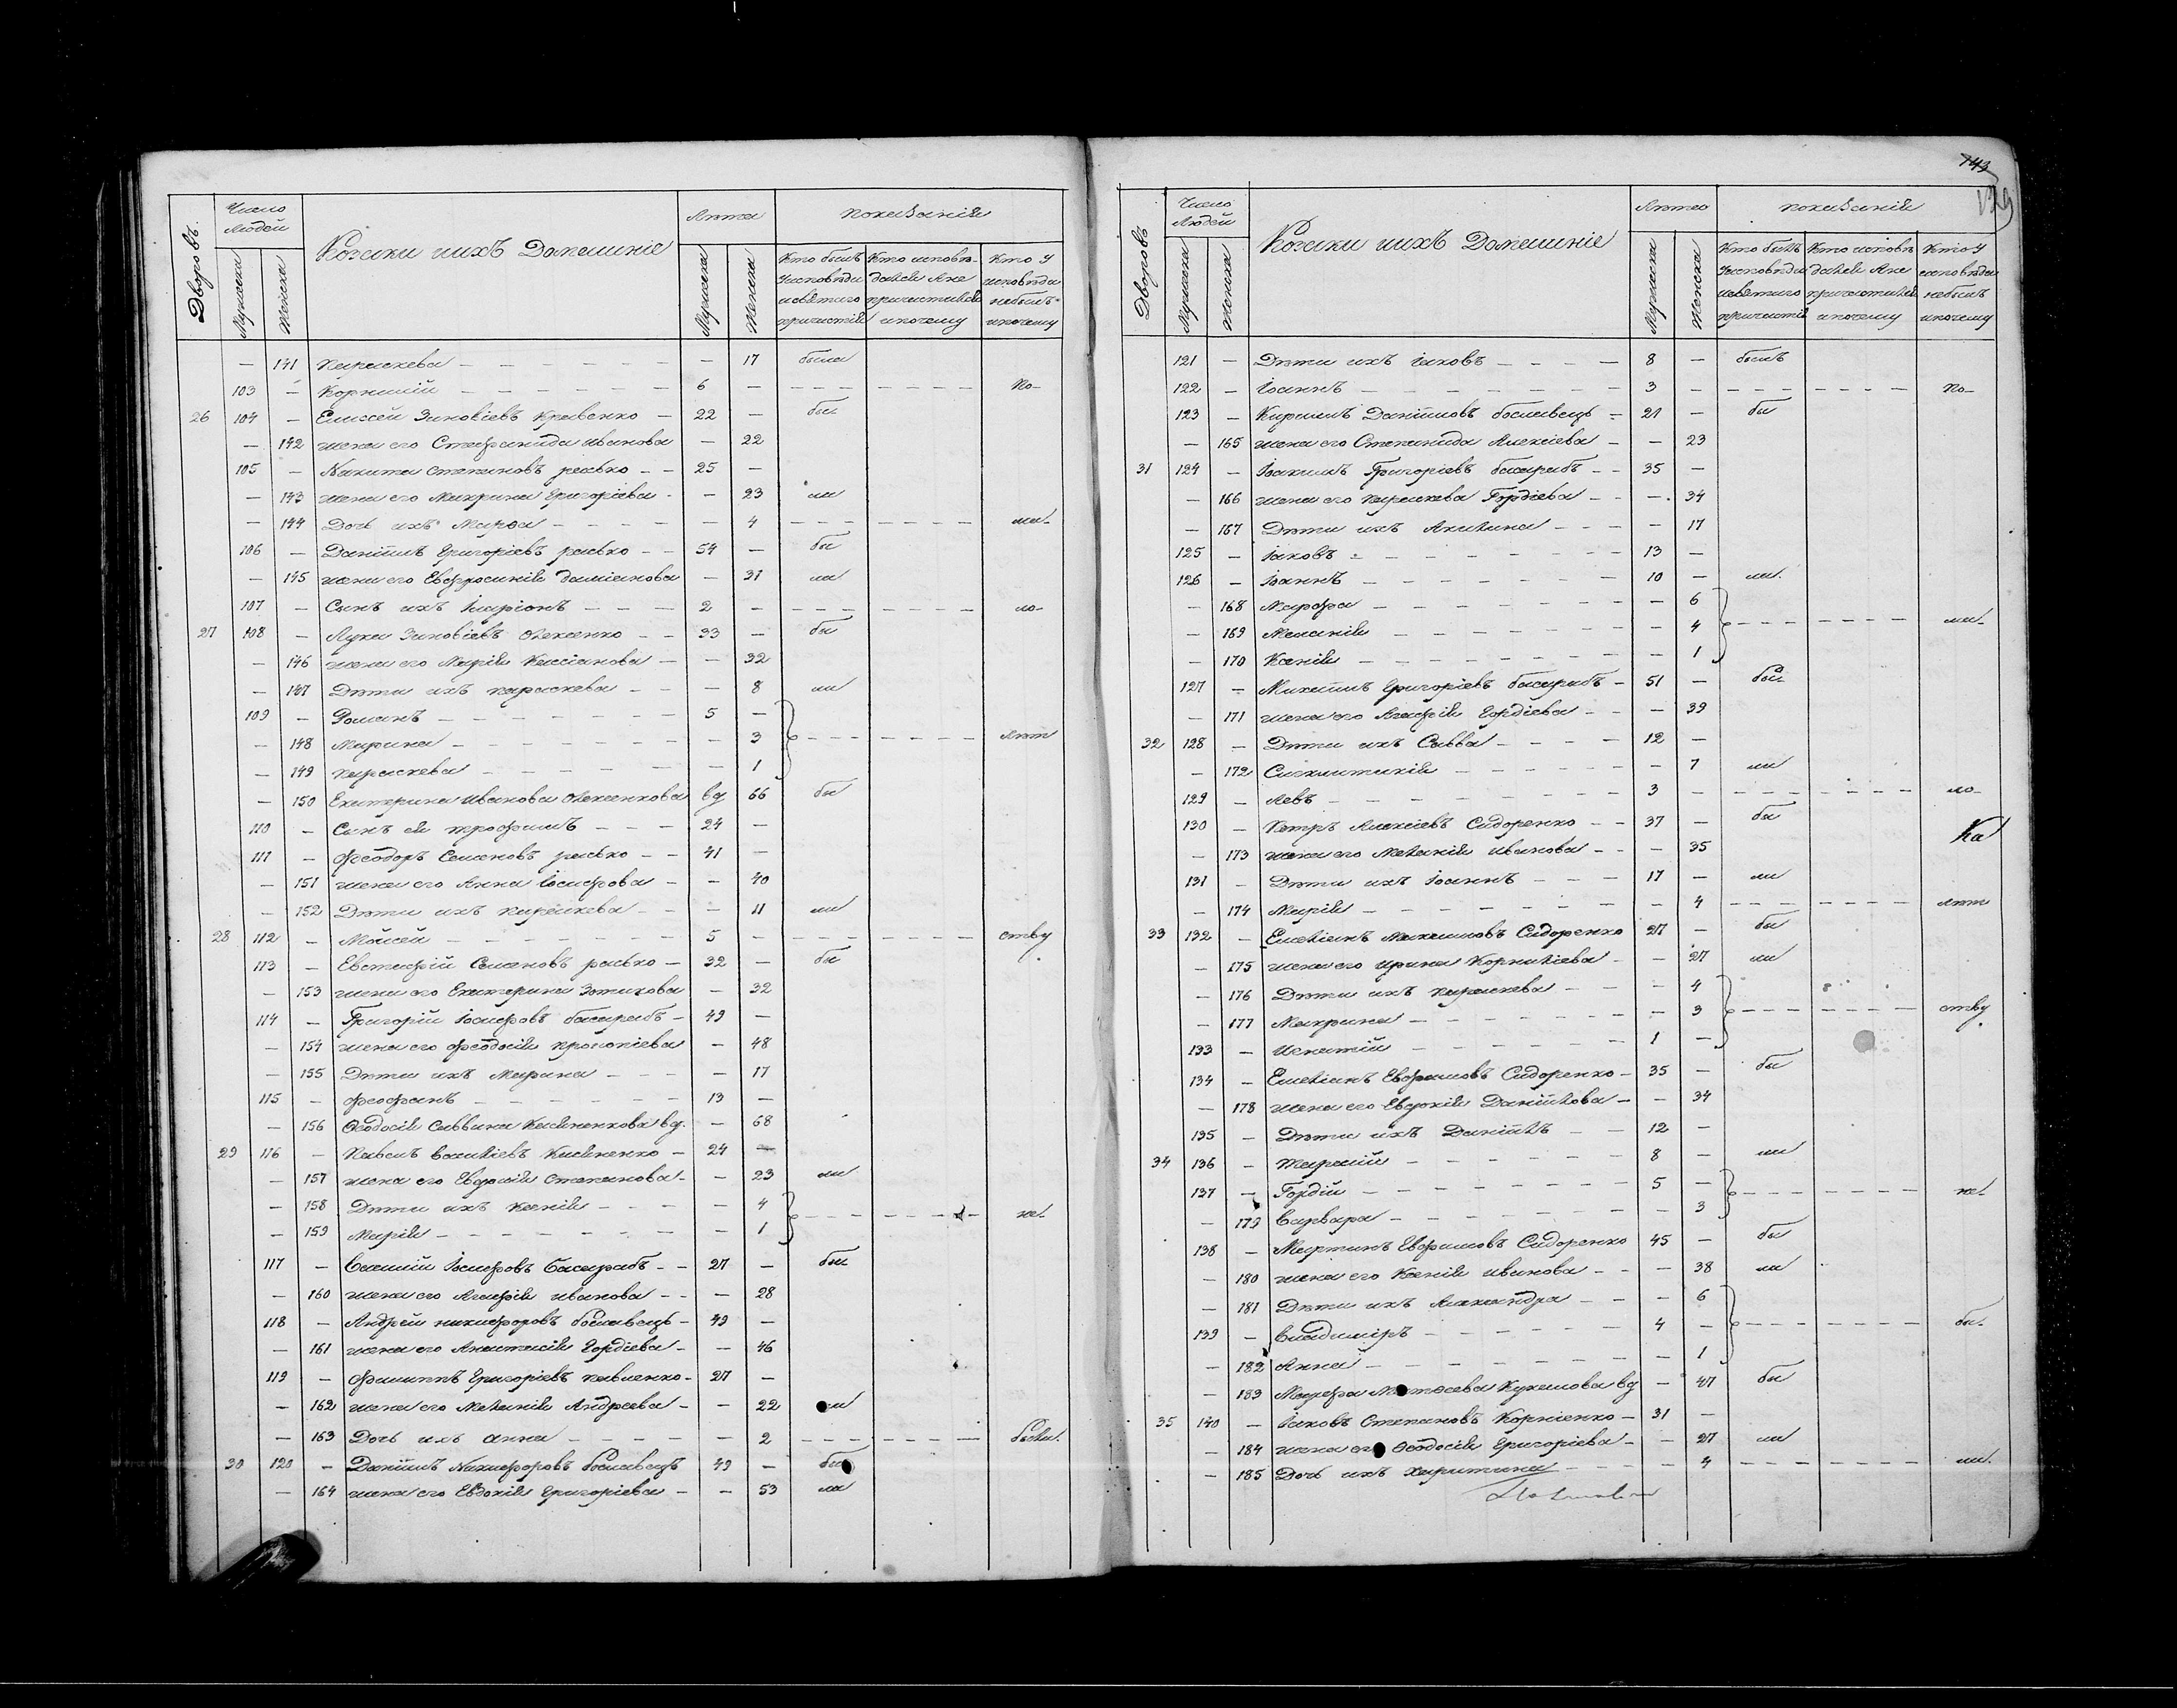 143
139
Дворовъ.
Число Людей
Мужеска
Женска
Козаки ихъ Домашніе
Лѣта
Мужеска
Женска
показанія
Кто былъ уисповѣди исвятаго причастія
Кто исповѣдался Ане причастился ипочему
Кто у исповѣди небылъ ипочему
— 141 параскева — — 17 была
103 — Корнилій — 6 — по-
26 104 — Елисей Зиновіевъ Кравенко — 22 — бы-
— 142 жена его Стефанида иванова — 22
105 — Никита степановъ — 25 —
— 143 жена его Макрина григоріева — — 23 ли
— 144 Дочь ихъ Марфа — — 4 ма-
106 — Даніилъ григоріевъ — 54 — бы
— 145 жена его Евфросинія даміанова — 31 ли
107 — Сынъ ихъ Иларіонъ — 2 — ло-
27 108 — Лука Зиновіевъ — 33 — бы
— 146 жена его Марія Кассіанова — — 32
— 147 Дѣти ихъ параскева — — 8 ли
109 — Романъ — 5 —
— 148 Марина — — 3 лѣт
— 149 параскева — — 1
— 150 Екатерина иванова вд 66 бы
110 — Сынъ ея трофимъ — 24 —
111 — Феодоръ Семеновъ — 41 —
— 151 жена его Анна іосифова — — 40
— 152 Дѣти ихъ параскева — — 11 ли
28 112 — Моисей — 5 — ству
113 — Евстафій Семеновъ — 32 — бы
— 153 жена его Екатерина Зотикова — 32
114 — Григорій іосифовъ басарабъ — 49 —
— 154 жена его феодосія прокопіева — 48
— 155 Дѣти ихъ Марина — — 17
115 — феофанъ — 13 —
— 156 Феодосія Саввина Кисиленкова вд. — 68
29 116 — Павелъ василіевъ Кисиленко — 24 —
— 157 жена его Евфимія степанова — — 23 ли
— 158 Дѣти ихъ Ксенія — — 4 не-
— 159 Марія — — 1
117 — Василій іосифовъ басарабъ — 27 — бы
— 160 жена его Агафія иванова — — 28
118 — Андрей никифоровъ богславецъ — 49 —
— 161 жена его Анастасія Гордіева — — 46
119 — Филиппъ григоріевъ павленко — 27 —
— 162 жена его Меланія Андреева — — 22 ли
— 163 Дочь ихъ Анна — — 2 были.
30 120 — Даніилъ Никифоровъ — 49 — бы
— 164 жена его Евдокія григоріева — — 53 ла
Дворовъ
Число Людей
Мужеска
Женска
Козаки ихъ Домашніе
Лѣта
Мужеска
Женска
показанія
Кто былъ уисповѣди исвятаго причастія
Кто исповѣдался Ане причастился ипочему
Кто у исповѣди небылъ ипочему
121 — Дѣти ихъ іаковъ — 8 — былъ
122 — Іоаннъ — 3 — по-
123 — Кириллъ Даніиловъ — 21 — бы
— 165 жена его Степанида Алексіева — — 23
31 124 — Іоакимъ Григоріевъ басарабъ — 35 —
— 166 жена его параскева Гордіева — — 34
— 167 Дѣти ихъ Акилина — — 17
125 — іаковъ — 13 —
126 — Іоаннъ — 10 — ли.
— 168 Марфа — — 6
— 169 Меланія — — 4 ма-
— 170 Ксенія — — 1
127 — Михаилъ григоріевъ басарабъ — 51 — бы-
— 171 жена его Агафія гордіева — — 39
32 128 — Дѣти ихъ Савва — 12 —
— 172 Сигклитикія — — 7 ли
129 — Левъ — 3 — ло-
130 — Петръ Алексіевъ Сидоренко — 37 — бы
Ка
— 173 жена его Меланія иванова — — 35
131 — Дѣти ихъ Іоаннъ — 17 — ли
— 174 Марія — — 4 лѣт
33 132 — Емеліанъ Максимовъ Сидоренко 27 — бы
— 175 жена его ирина Корниліева — — 27 ли
— 176 Дѣти ихъ параскева — — 4
— 177 Макрина — — 3 ству
133 — Игнатій — 1 —
134 — Емеліанъ Ефремовъ Сидоренко — 35 — бы
— 178 жена его Евдокія Даніилова — — 34
135 — Дѣти ихъ Даніилъ — 12 —
34 136 — 8 — ли
137 — Гордій — 5 — не-
— 179 Варвара — — 3
138 — Мартинъ Ефремовъ Сидоренко 45 — бы
— 180 жена его Ксенія иванова — — 38 ли
— 181 Дѣти ихъ Александра — — 6
139 — Владиміръ — 4 — бы-
— 182 Анна — — 1
— 183 Марфа вд — 47 бы
35 140 — Іаковъ Степановъ Корніенко — 31 —
— 184 жена его Феодосія григоріева — — 27 ли
— 185 Дочь ихъ харитина — — 4 ли.